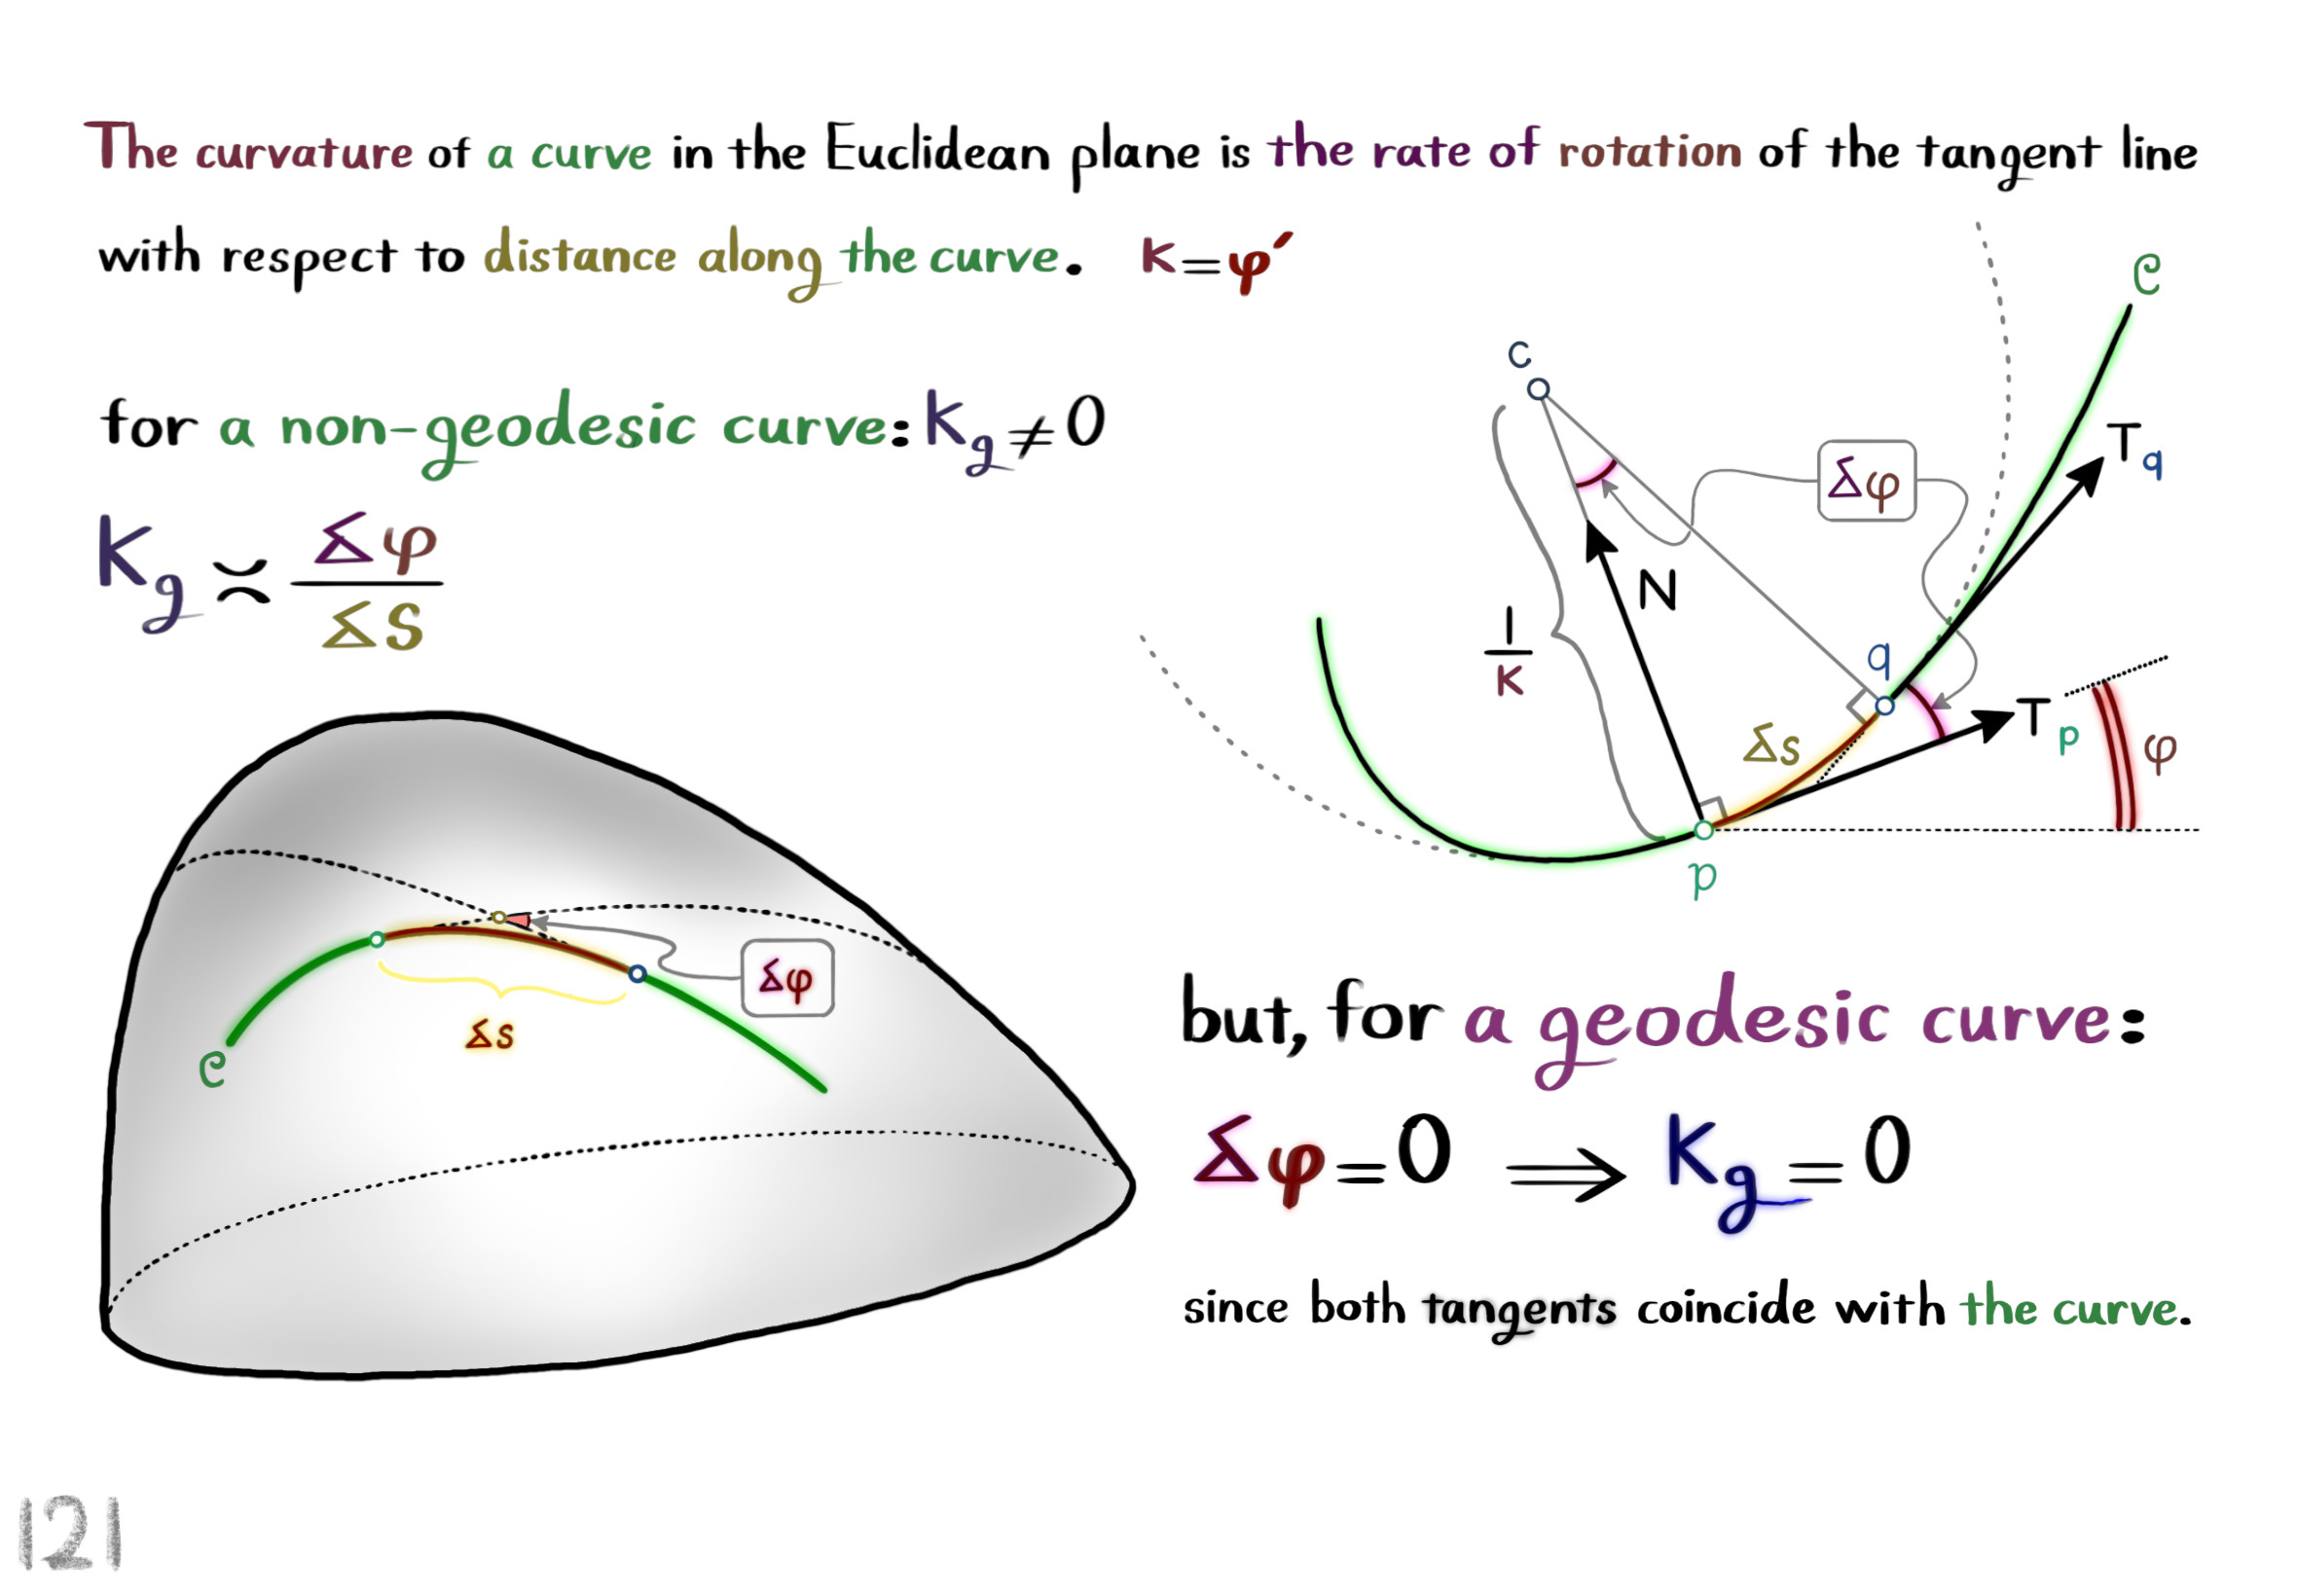 The curvature of a curve in the Euclidean plane is the rate of rotation of the tangent line
with respect to distance along the curve. κ=φ′
for a non-geodesic curve: κg≠0
κg ≍ Δφ/Δs
C
c
Δφ
Tq
N
1/κ
q
Δs
Tp
φ
p
Δφ
Δs
C
but, for a geodesic curve:
Δφ=0 ⟹ κg=0
since both tangents coincide with the curve.
121